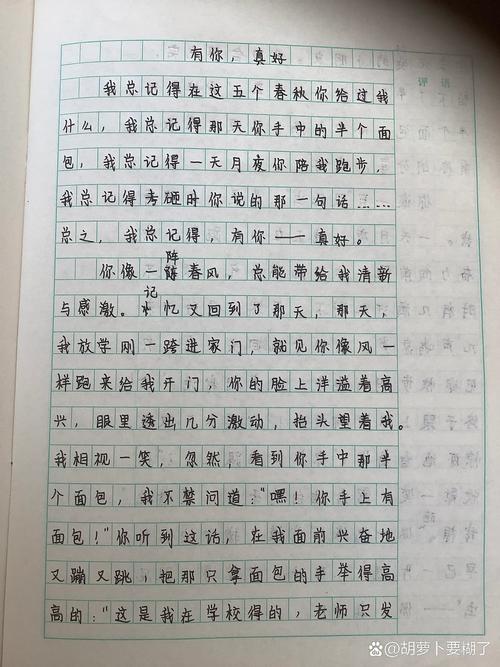 有你，真好
我总记得在这五个春秋你给过我
什么，我总记得那天你手中的半个面
包，我总记得一天月夜你陪我跑步，
我总记得考砸时你说的那一句话……
总之，我总记得，有你——真好。
你像一阵春风，总能带给我清新
与感激。记忆又回到了那天，那天，
我放学刚一跨进家门，就见你像风一
样跑来给我开门，你的脸上洋溢着高
兴，眼里透出几分激动，抬头望着我。
我相视一笑，忽然，看到你手中那半
个面包，我不禁问道："嘿！你手上有
面包！"你听到这话，在我面前兴奋地
又蹦又跳，把那只拿面包的手举得高
高的："这是我在学校得的，老师只发
评语
@胡萝卜要糊了